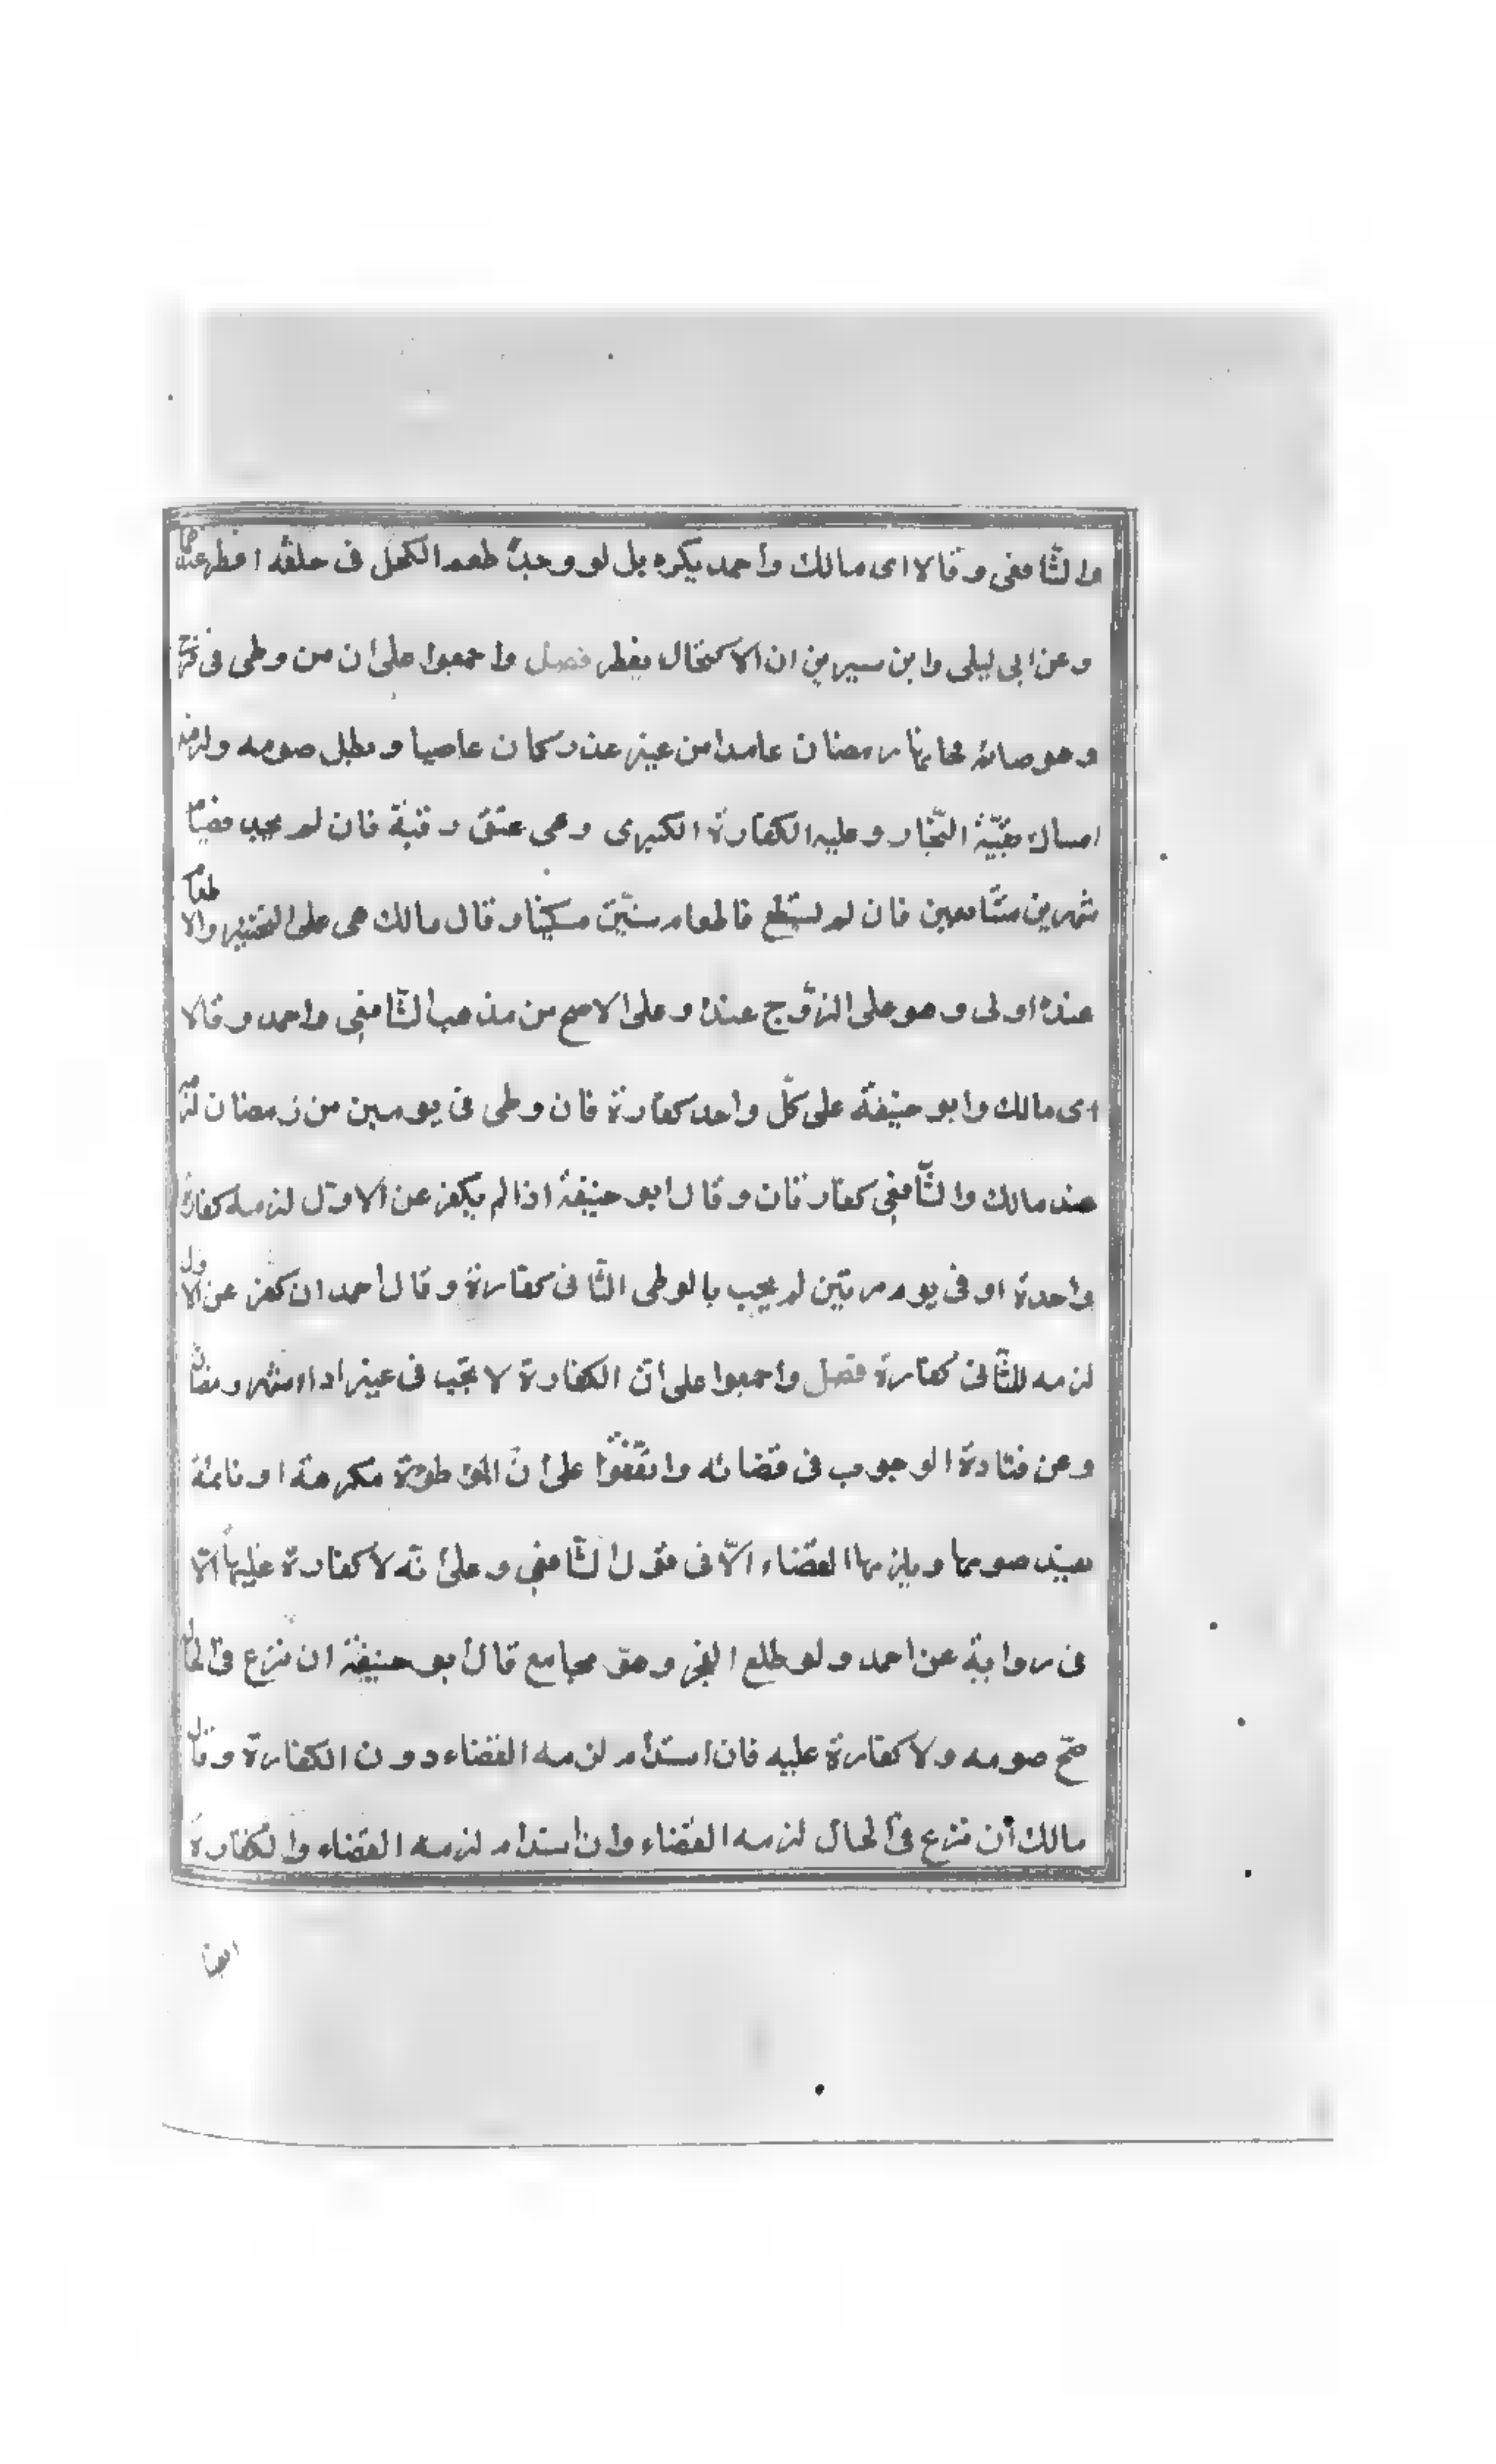 والشافعي وقالا اى مالك واحمد يكره بل لو وجد طعم الكحل فى حلقه افطر عندهما
وعن ابى ليلى وابن سيرين ان الاكتحال يفطر فصل واجمعوا على ان من وطى فى فرج
وهو صائم نهار رمضان عامدا من غير عذر كان عاصيا وبطل صومه ولزمه
امساك بقيّة النّهار وعليه الكفارة الكبرى وهى عتق رقبة فان لم يجد فصيام
شهرين متتابعين فان لم يستطع فاطعام ستّين مسكينا وقال مالك هى على التخيير والاطعام
عنده اولى وهو على الزّوج عنده وعلى الاصح من مذهب الشّافعي واحمد وقالا
اى مالك وابو حنيفة على كلّ واحد كفارة فان وطى فى يومين من رمضان لزمه
عند مالك والشّافعي كفارتان وقال ابو حنيفة اذا لم يكفر عن الاوّل لزمه كفارة
واحدة او فى يوم مرتين لم يجب بالوطى الثّانى كفارة وقال احمد ان كفر عن الاول
لزمه للثّانى كفارة فصل واجمعوا على انّ الكفارة لا تجب فى غير اداء شهر رمضان
وعن قتادة الوجوب فى قضائه واتّفقوا على انّ الموطؤة مكرهة او نائمة
يفسد صومها ويلزمها القضاء الّا فى قول الشّافعي وعلى انّه لا كفارة عليها الّا
فى رواية عن احمد ولو طلع الفجر وهو مجامع قال ابو حنيفة ان نزع فى الحال
صحّ صومه ولا كفارة عليه فان استدام لزمه القضاء دون الكفارة وقال
مالك ان نزع فى الحال لزمه القضاء وان استدام لزمه القضاء والكفارة